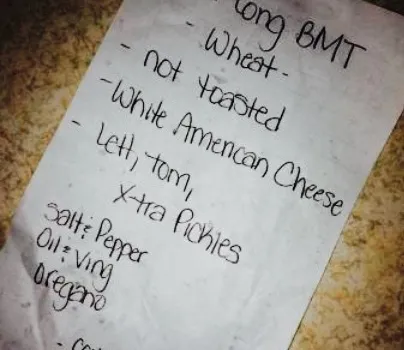 long BMT
- Wheat -
- not toasted
- White American Cheese
- Lett, tom,
X-tra Pickles
Salt & Pepper
Oil & Ving
Oregano